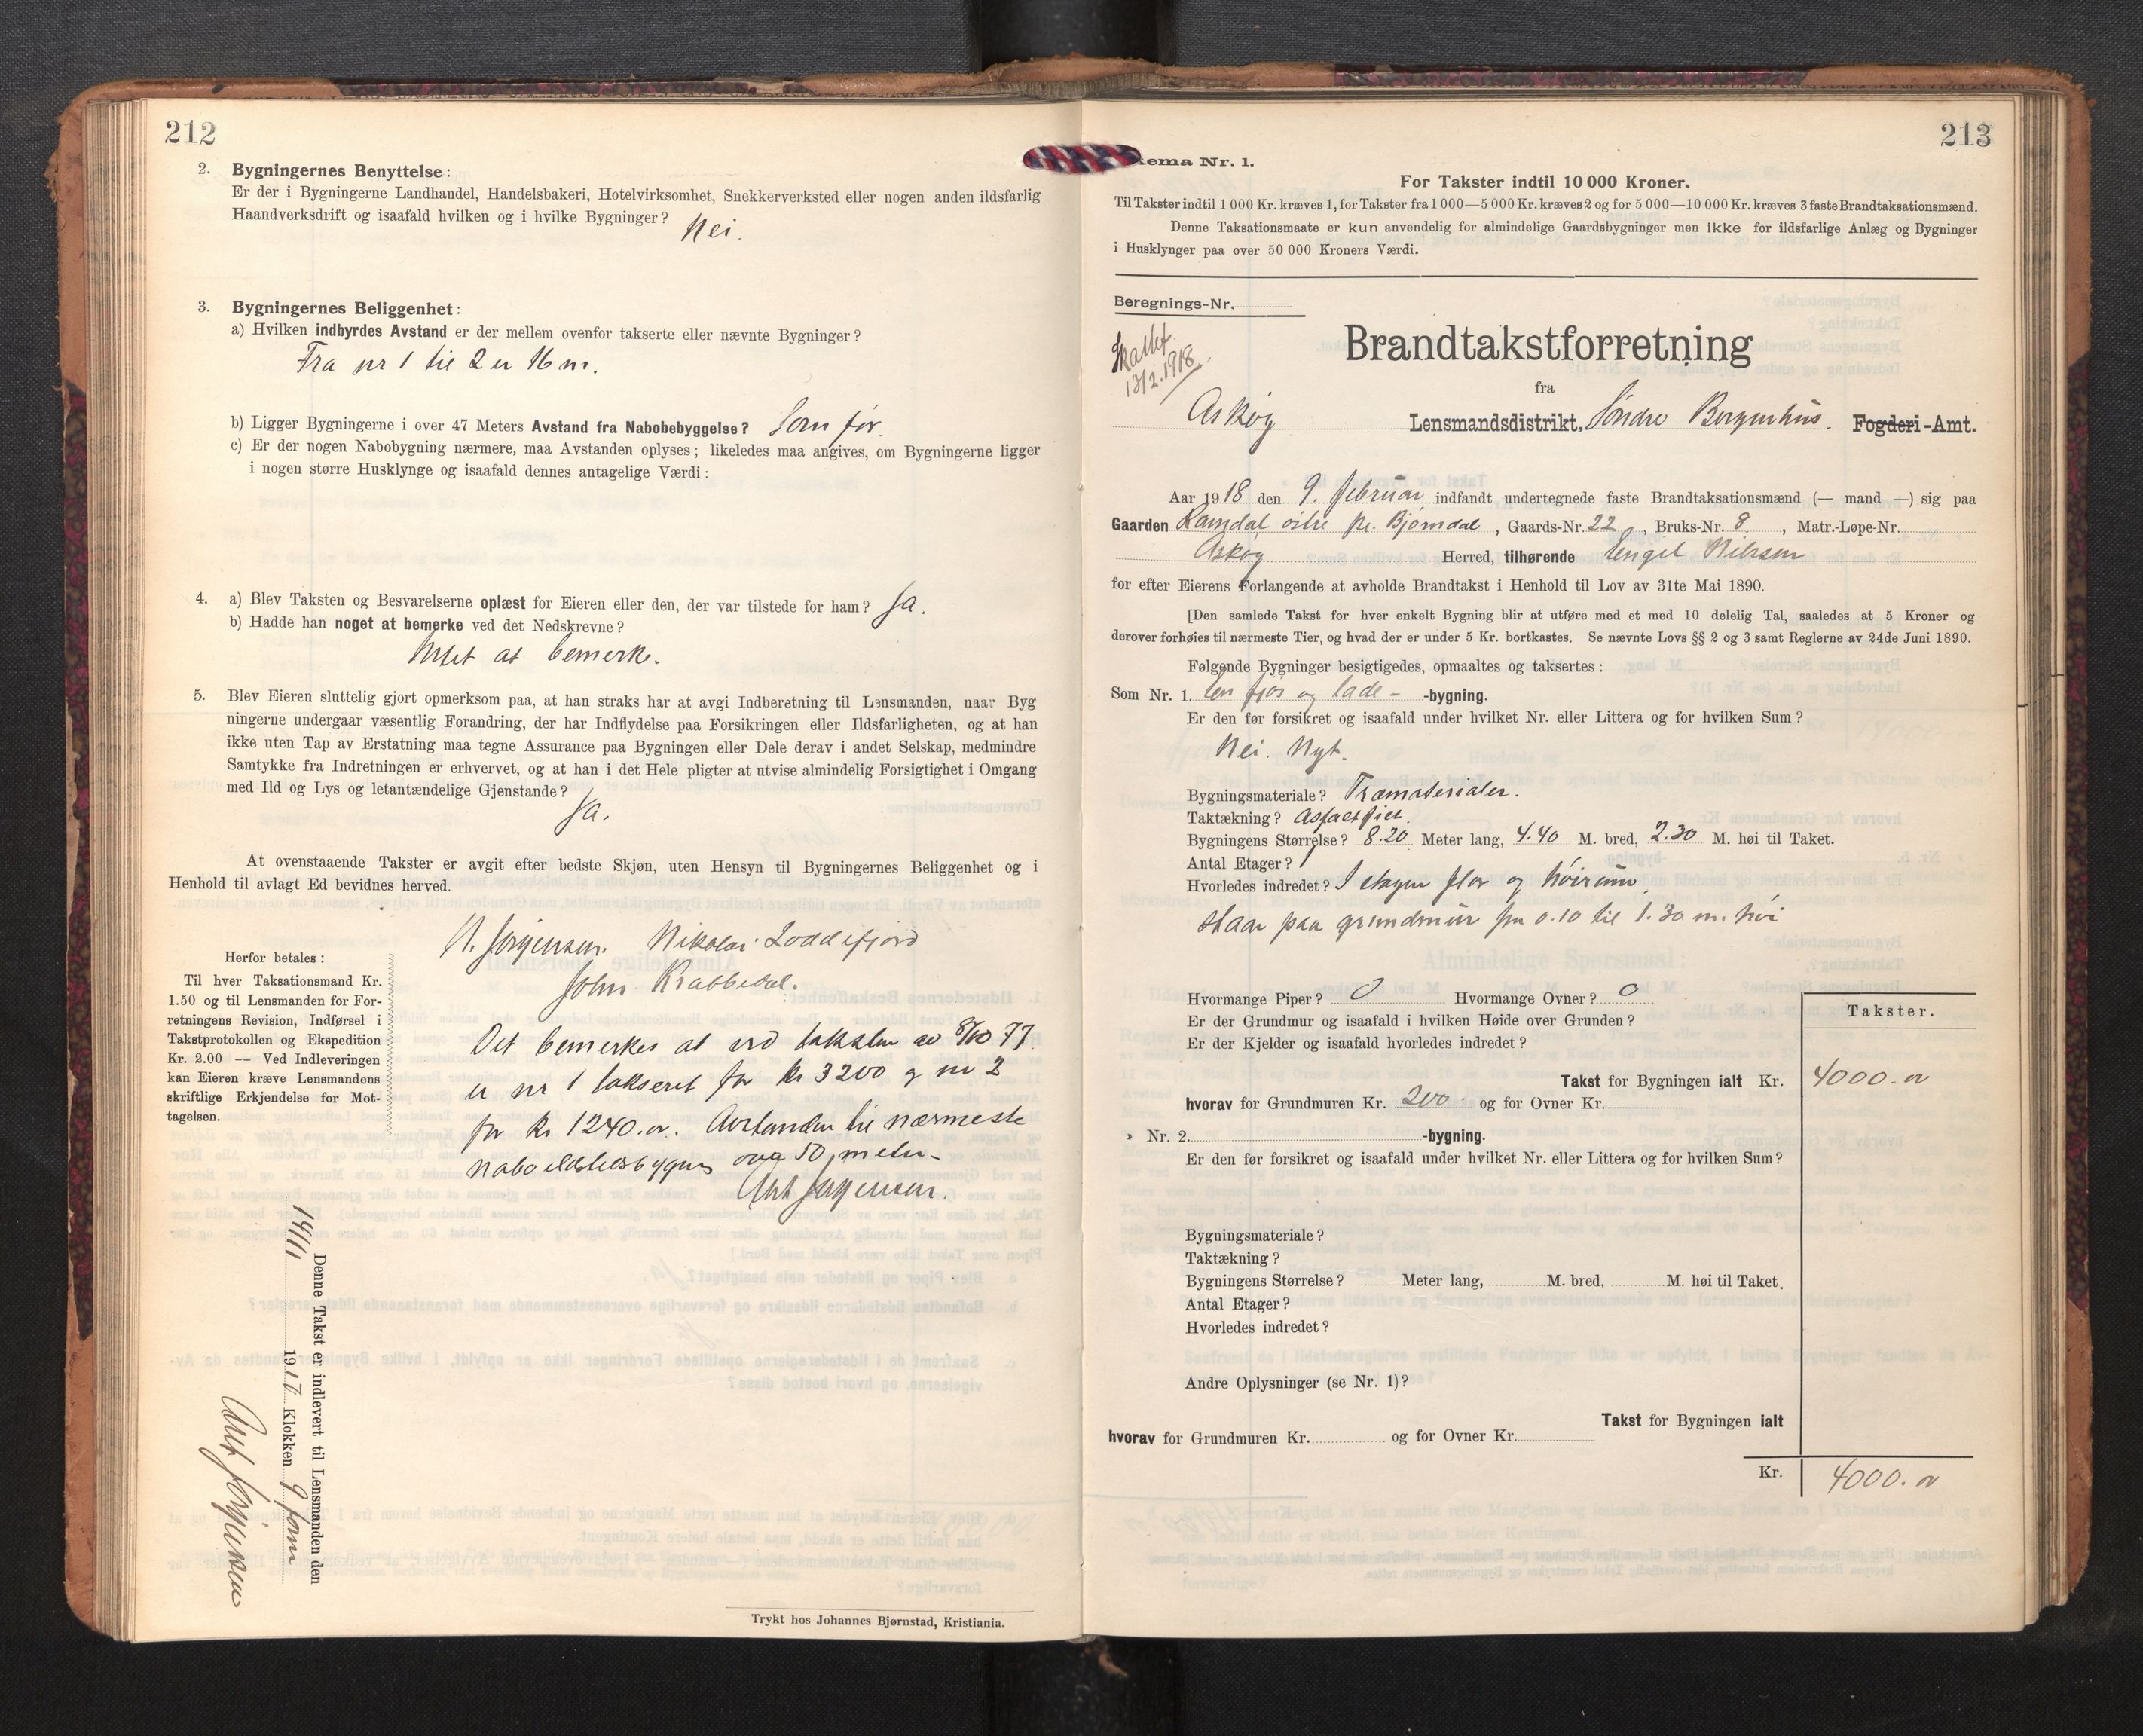 212
2. Bygningernes Benyttelse:
Er der i Bygningerne Landhandel, Handelsbakeri, Hotelvirksomhet, Snekkerverksted eller nogen anden ildsfarlig
Haandverksdrift og isaafald hvilken og i hvilke Bygninger? Nei.
3. Bygningernes Beliggenhet:
a) Hvilken indbyrdes Avstand er der mellem ovenfor takserte eller nævnte Bygninger?
Fra nr 1 til 2 er 16 m.
b) Ligger Bygningerne i over 47 Meters Avstand fra Nabobebyggelse? Som før.
c) Er der nogen Nabobygning nærmere, maa Avstanden oplyses; likeledes maa angives, om Bygningerne ligger
i nogen større Husklynge og isaafald dennes antagelige Værdi:
4. a) Blev Taksten og Besvarelserne oplæst for Eieren eller den, der var tilstede for ham? Ja.
b) Hadde han noget at bemerke ved det Nedskrevne?
Intet at bemerke.
5. Blev Eieren sluttelig gjort opmerksom paa, at han straks har at avgi Indberetning til Lensmanden, naar Byg
ningerne undergaar væsentlig Forandring, der har Indflydelse paa Forsikringen eller Ildsfarligheten, og at han
ikke uten Tap av Erstatning maa tegne Assurance paa Bygningen eller Dele derav i andet Selskap, medmindre
Samtykke fra Indretningen er erhvervet, og at han i det Hele pligter at utvise almindelig Forsigtighet i Omgang
med Ild og Lys og letantændelige Gjenstande?
Ja.
At ovenstaaende Takster er avgit efter bedste Skjøn, uten Hensyn til Bygningernes Beliggenhet og i
Henhold til avlagt Ed bevidnes herved.
N. Jørgensen. Nikolai Loddefjord
John Krabbedal.
Herfor betales:
Til hver Taksationsmand Kr.
1.50 og til Lensmanden for For-
retningens Revision, Indførsel i
Takstprotokollen og Ekspedition
Kr. 2.00 — Ved Indleveringen
kan Eieren kræve Lensmandens
skriftlige Erkjendelse for Mot-
tagelsen.
Det bemerkes at ved taksten av 8/10
er nr 1 takseret for kr 3200 og nr 2
for kr 1240.00. Avstanden til nærmeste
over 50 meter.
Ant Jørgensen.
Denne Takst er indlevert til Lensmanden den
14/11 1917 Klokken 9 form
Ant Jørgensen
Trykt hos Johannes Bjørnstad, Kristiania.
213
kema Nr. 1.
For Takster indtil 10 000 Kroner.
Til Takster indtil 1 000 Kr. kræves 1, for Takster fra 1 000—5 000 Kr. kræves 2 og for 5 000—10 000 Kr. kræves 3 faste Brandtaksationsmænd.
Denne Taksationsmaate er kun anvendelig for almindelige Gaardsbygninger men ikke for ildsfarlige Anlæg og Bygninger
i Husklynger paa over 50 000 Kroners Værdi.
Beregnings-Nr.
13/2.1918.
Brandtakstforretning
fra
Askøy Lensmandsdistrikt, Søndre Bergenhus. Fogderi-Amt.
Aar 1918 den 9. februar indfandt undertegnede faste Brandtaksationsmænd (— mand —) sig paa
Gaarden Ramdal østre pr. Bjørndal, Gaards-Nr. 22, Bruks-Nr. 8, Matr.-Løpe-Nr.
Askøy Herred, tilhørende Engel Nilssen
for efter Eierens Forlangende at avholde Brandtakst i Henhold til Lov av 31te Mai 1890.
[Den samlede Takst for hver enkelt Bygning blir at utføre med et med 10 delelig Tal, saaledes at 5 Kroner og
derover forhøies til nærmeste Tier, og hvad der er under 5 Kr. bortkastes. Se nævnte Lovs §§ 2 og 3 samt Reglerne av 24de Juni 1890.
Følgende Bygninger besigtigedes, opmaaltes og taksertes:
Som Nr. 1. En fjøs og lade- -bygning.
Er den før forsikret og isaafald under hvilket Nr. eller Littera og for hvilken Sum?
Nei. Nyt.
Bygningsmateriale? Træmaterialer.
Taktækning? Asfaltfilt.
Bygningens Størrelse? 8.20 Meter lang, 4.40 M. bred, 2.30 M. høi til Taket.
Antal Etager? 1
Hvorledes indredet? I etagen flor og høirum.
staar paa grundmur fra 0.10 til 1.30 m. høi
Hvormange Piper? 0 Hvormange Ovner? 0
Er der Grundmur og isaafald i hvilken Høide over Grunden?
Er der Kjelder og isaafald hvorledes indredet?
Takster.
Takst for Bygningen ialt Kr. 4000.00
hvorav for Grundmuren Kr. 200 og for Ovner Kr.
» Nr. 2. -bygning.
Er den før forsikret og isaafald under hvilket Nr. eller Littera og for hvilken Sum?
Bygningsmateriale?
Taktækning?
Bygningens Størrelse? Meter lang, M. bred, M. høi til Taket.
Antal Etager?
Hvorledes indredet?
Andre Oplysninger (se Nr. 1)?
Takst for Bygningen ialt
hvorav for Grundmuren Kr. og for Ovner Kr.
Kr. 4000.00